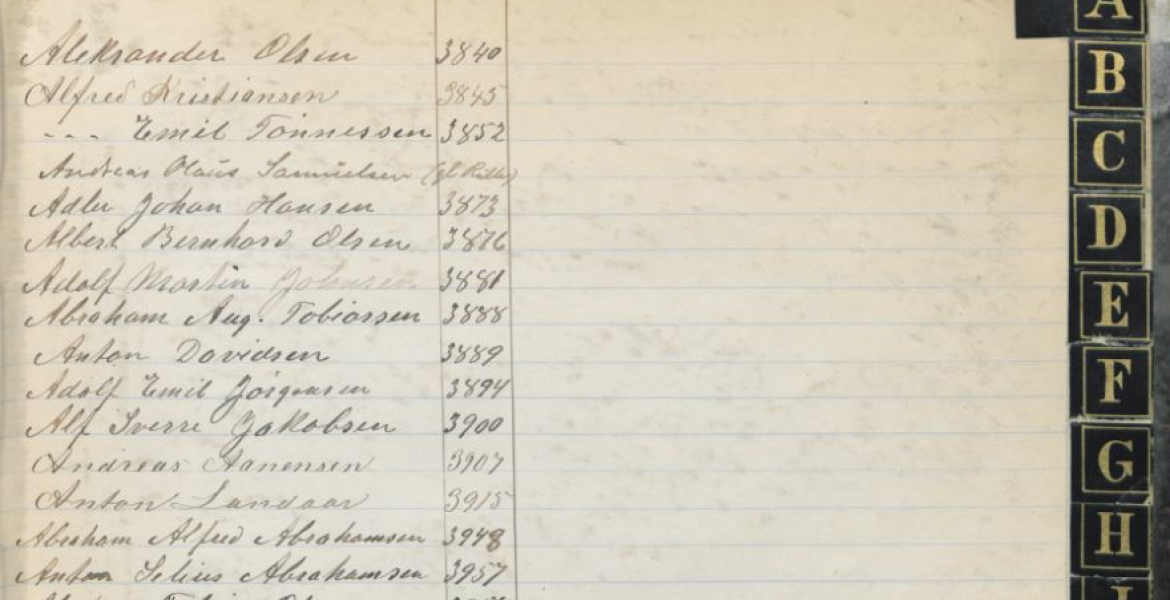 Aleksander Olsen 3840
Alfred Kristiansen 3845
- - - Emil Tönnessen 3852
Andreas Olaüs Samüelsen (gl. Rulle)
Adler Johan Hansen 3873
Albert Bernhard Olsen 3876
Adolf Martin Johnsen 3881
Abraham Aug. Tobiassen 3888
Anton Davidsen 3889
Adolf Emil Jörgensen 3894
Alf Sverre Jakobsen 3900
Andreas Aanensen 3907
Anton Landaas 3915
Abraham Alfred Abrahamsen 3948
Anton Selius Abrahamsen 3957
A
B
C
D
E
F
G
H